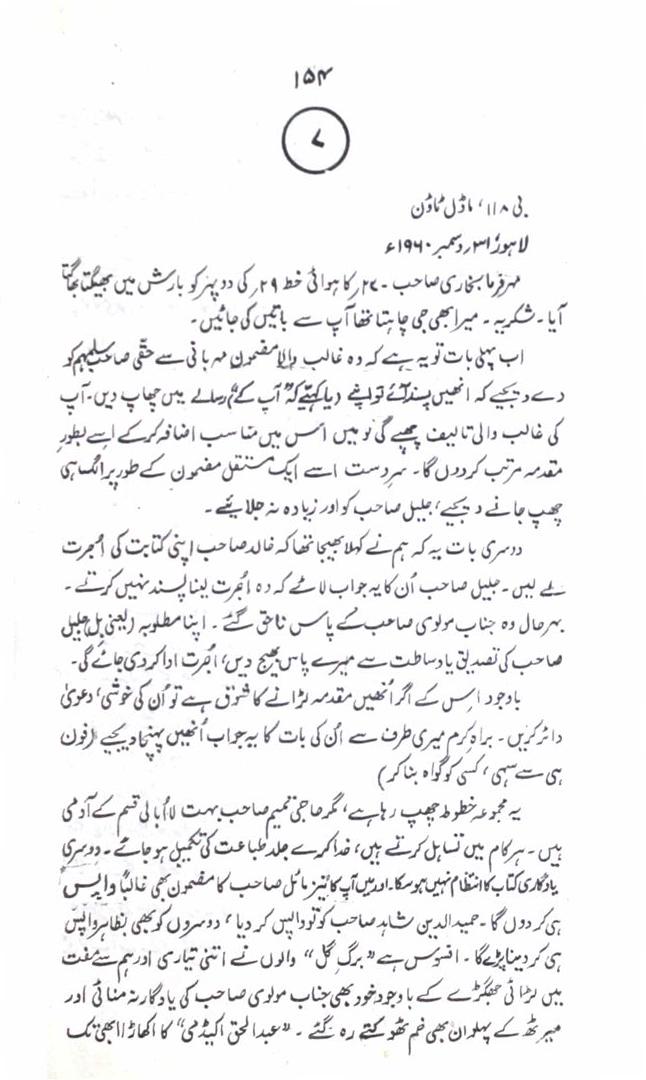 ۱۵۴
۷
بی ۱۱۸، ماڈل ٹاؤن
لاہور ۳۱؍ دسمبر ۱۹۶۰ء
مہر فرما بخاری صاحب ۔ ۲۷؍ کا ہوائی خط ۲۹؍ کی دوپہر کو بارش میں بھیگتا بھاگتا
آیا ۔ شکریہ ۔ میرا بھی جی چاہتا تھا آپ سے باتیں کی جائیں ۔
اب پہلی بات تو یہ ہے کہ وہ غالب والا مضمون مہربانی سے حقّی صاحب سلمہم کو
دے دیجیے کہ انھیں پسند آئے تو اپنے (یا کہئیے کہ "آپ کے") رسالے میں چھاپ دیں ۔ آپ
کی غالب والی تالیف چھپے گی تو میں اس میں مناسب اضافہ کر کے اسے بطورِ
مقدمہ مرتب کر دوں گا ۔ سرِدست اسے ایک مستقل مضمون کے طور پر الگ ہی
چھپ جانے دیجیے، جلیل صاحب کو اور زیادہ نہ جلائیے ۔
دوسری بات یہ کہ ہم نے کہلا بھیجا تھا کہ خالد صاحب اپنی کتابت کی اُجرت
لے لیں ۔ جلیل صاحب اُن کا یہ جواب لائے کہ وہ اُجرت لینا پسند نہیں کرتے ۔
بہرحال وہ جناب مولوی صاحب کے پاس ناحق گئے ۔ اپنا مطلوبہ (یعنی بل) جلیل
صاحب کی تصدیق یا وساطت سے میرے پاس بھیج دیں، اُجرت ادا کر دی جائے گی ۔
باوجود اس کے اگر اُنھیں مقدمہ لڑانے کا شوق ہے تو اُن کی خوشی، دعویٰ
دائر کریں ۔ براہِ کرم میری طرف سے اُن کی بات کا یہ جواب اُنھیں پہنچا دیجیے (فون
ہی سے سہی، کسی کو گواہ بنا کر)
یہ مجموعہ خطوط چھپ رہا ہے، مگر حاجی نمیم صاحب بہت لااُبالی قسم کے آدمی
ہیں ۔ ہر کام میں تساہل کرتے ہیں، خدا کرے جلد طباعت کی تکمیل ہو جائے ۔ دوسری
یادگاری کتاب کا انتظام نہیں ہو سکا ۔ اور میں آپ کا نیز مائل صاحب کا مضمون بھی غالباً واپس
ہی کر دوں گا ۔ حمید الدین شاہد صاحب کو تو واپس کر دیا، دوسروں کو بھی بظاہر واپس
ہی کر دینا پڑے گا ۔ افسوس ہے "برگِ گل" والوں نے اتنی تیاری اور ہم سے مفت
میں لڑائی جھگڑے کے باوجود خود بھی جناب مولوی صاحب کی یادگار نہ منائی اور
میرٹھ کے پہلوان بھی خم ٹھوکتے رہ گئے ۔ "عبدالحق اکیڈمی" کا اکھاڑا ابھی تک